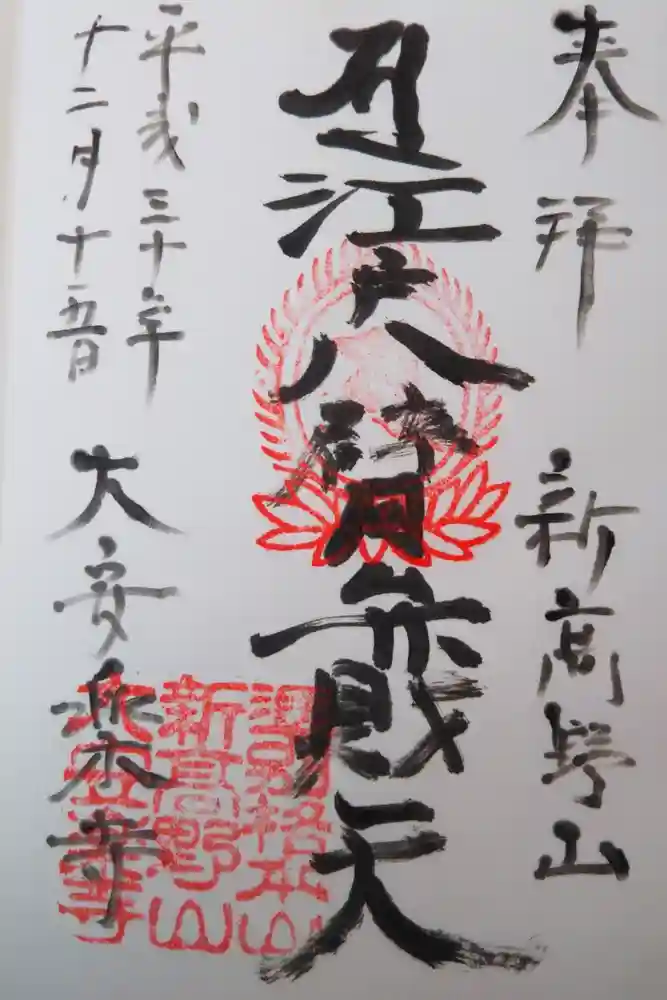 奉拝 新高野山
江戸八臂弁財天
平成三十年
十二月十五日
大安楽寺
準別格本山
新高野山
大安楽寺